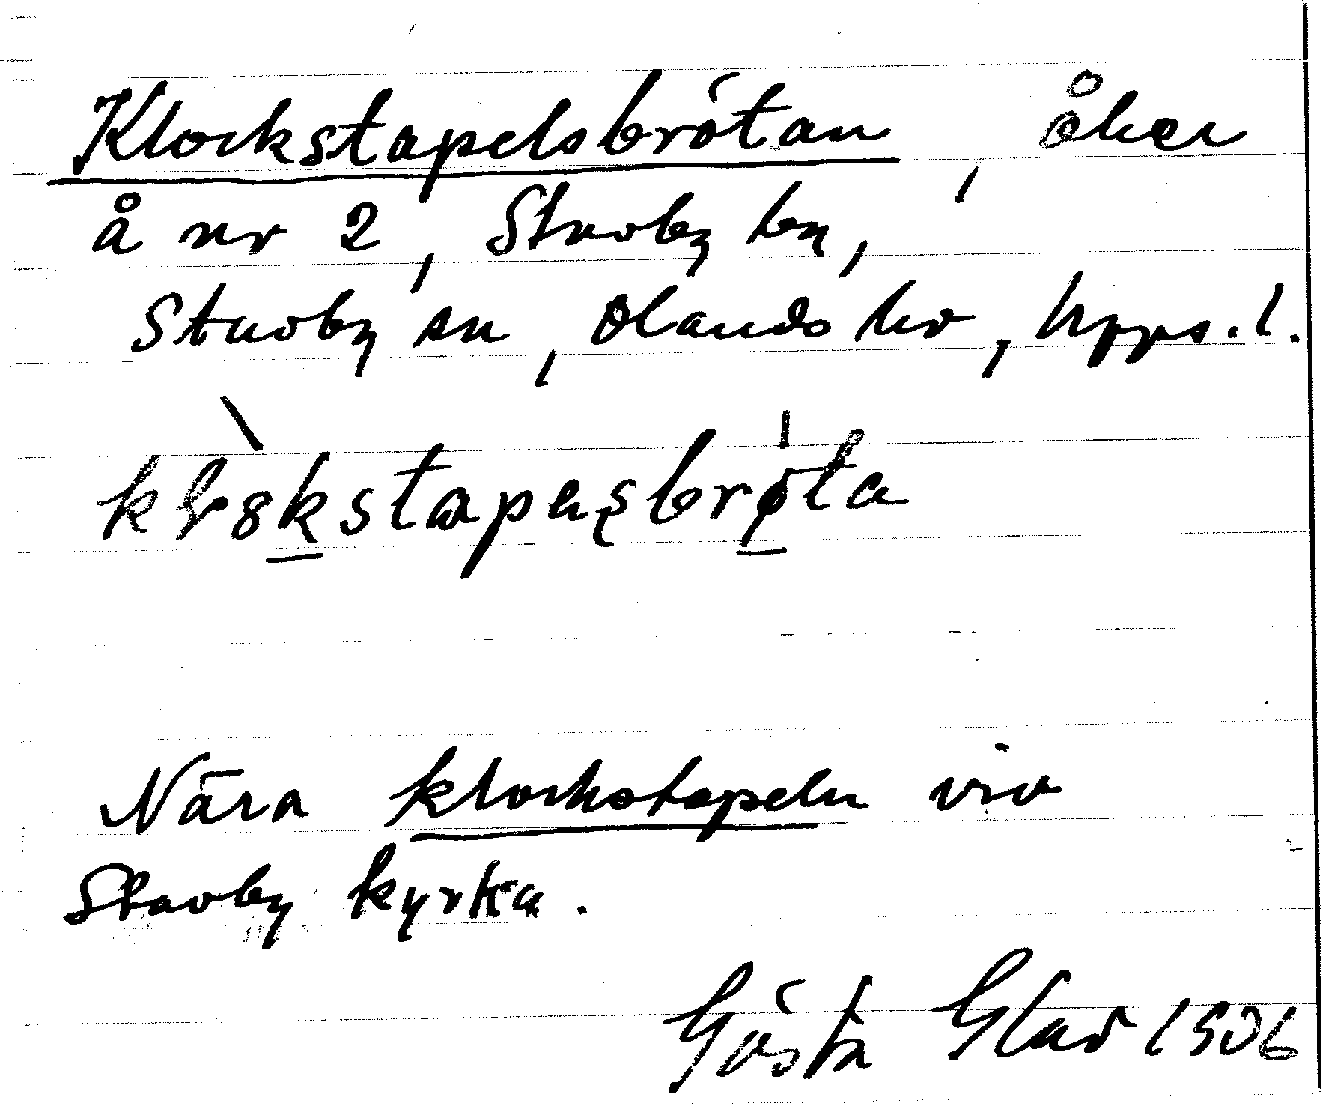 Klockstapelsbrötan, åker
å nr 2, Stavby by,
Stavby sn, Olands hd, Upps. l.
Nära klockstapeln vid
Stavby kyrka.
Gösta Glad 1936